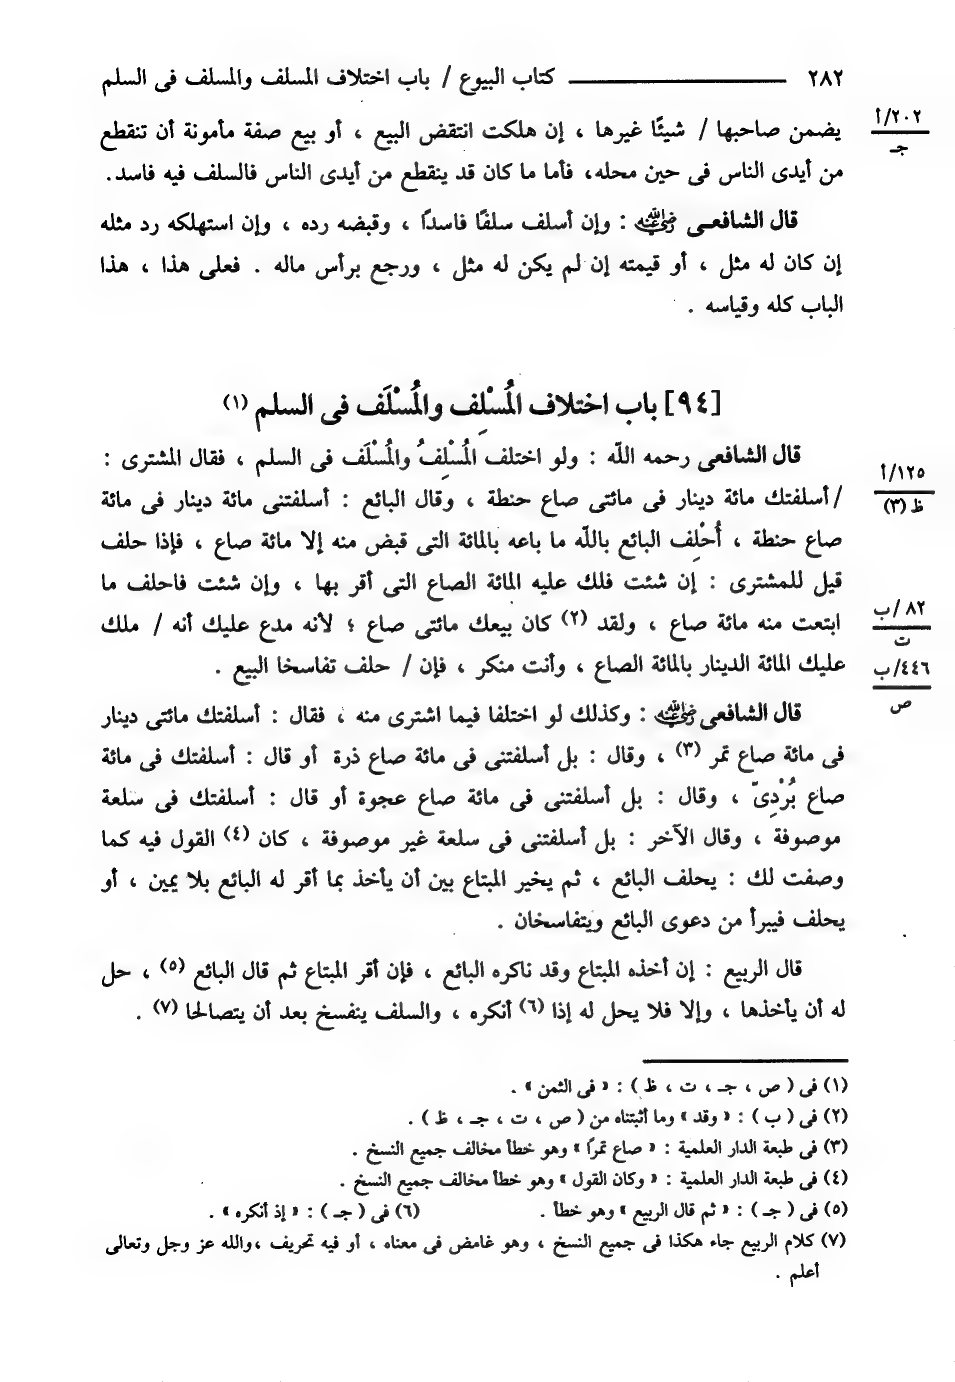 ٢٨٢ ــــــــــــ كتاب البيوع / باب اختلاف المسلف والمسلف فى السلم
٢٠٢/أ
جـ
يضمن صاحبها / شيئًا غيرها ، إن هلكت انتقض البيع ، أو بيع صفة مأمونة أن تنقطع
من أيدى الناس فى حين محله، فأما ما كان قد ينقطع من أيدى الناس فالسلف فيه فاسد.
قال الشافعـى رضي الله عنه : وإن أسلف سلفًا فاسدًا ، وقبضه رده ، وإن استهلكه رد مثله
إن كان له مثل ، أو قيمته إن لم يكن له مثل ، ورجع برأس ماله . فعلى هذا ، هذا
الباب كله وقياسه .
[٩٤] باب اختلاف المُسْلِف والمُسْلَف فى السلم (١)
قال الشافعى رحمه اللّه : ولو اختلف المُسْلِفُ والمُسْلَف فى السلم ، فقال المشترى :
١٢٥/أ
ظ (٣)
/ أسلفتك مائة دينار فى مائتى صاع حنطة ، وقال البائع : أسلفتنى مائة دينار فى مائة
صاع حنطة ، أُحْلِف البائع باللّه ما باعه بالمائة التى قبض منه إلا مائة صاع ، فإذا حلف
قيل للمشترى : إن شئت فلك عليه المائة الصاع التى أقر بها ، وإن شئت فاحلف ما
٨٢/ب
ت
ابتعت منه مائة صاع ، ولقد (٢) كان بيعك مائتى صاع ؛ لأنه مدع عليك أنه / ملك
٤٤٦/ب
ص
عليك المائة الدينار بالمائة الصاع ، وأنت منكر ، فإن / حلف تفاسخا البيع .
قال الشافعى رضي الله عنه : وكذلك لو اختلفا فيما اشترى منه ، فقال : أسلفتك مائتى دينار
فى مائة صاع تمر (٣) ، وقال : بل أسلفتنى فى مائة صاع ذرة أو قال : أسلفتك فى مائة
صاع بُرْدِىّ ، وقال : بل أسلفتنى فى مائة صاع عجوة أو قال : أسلفتك فى سلعة
موصوفة ، وقال الآخر : بل أسلفتنى فى سلعة غير موصوفة ، كان (٤) القول فيه كما
وصفت لك : يحلف البائع ، ثم يخير المبتاع بين أن يأخذ بما أقر له البائع بلا يمين ، أو
يحلف فيبرأ من دعوى البائع ويتفاسخان .
قال الربيع : إن أخذه المبتاع وقد ناكره البائع ، فإن أقر المبتاع ثم قال البائع (٥) ، حل
له أن يأخذها ، وإلا فلا يحل له إذا (٦) أنكره ، والسلف ينفسخ بعد أن يتصالحا (٧) .
(١) فى ( ص ، جـ ، ت ، ظ ) : « فى الثمن » .
(٢) فى ( ب ) : « وقد » وما أثبتناه من ( ص ، ت ، جـ ، ظ ) .
(٣) فى طبعة الدار العلمية : « صاع تمرًا » وهو خطأ مخالف جميع النسخ .
(٤) فى طبعة الدار العلمية : « وكان القول » وهو خطأ مخالف جميع النسخ .
(٥) فى ( جـ ) : « ثم قال الربيع » وهو خطأ . (٦) فى ( جـ ) : « إذ أنكره » .
(٧) كلام الربيع جاء هكذا فى جميع النسخ ، وهو غامض فى معناه ، أو فيه تحريف ،والله عز وجل وتعالى
أعلم .